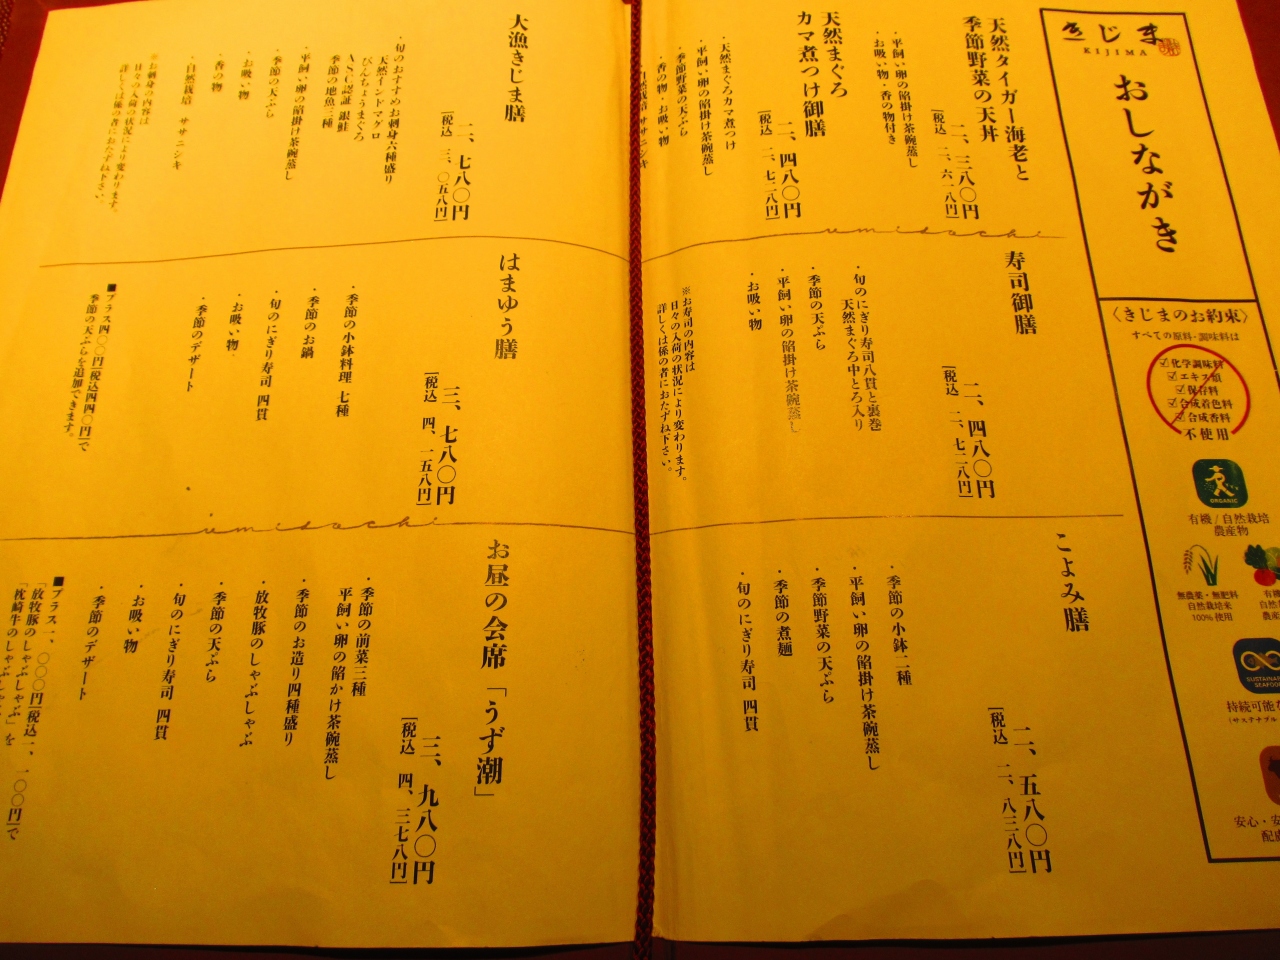 きじま
KIJIMA
おしながき
〈きじまのお約束〉
すべての原料・調味料は
☑化学調味料
☑エキス類
☑保存料
☑合成着色料
☑合成香料
不使用
ORGANIC
有機/自然栽培
農産物
無農薬・無肥料
自然栽培米
100%使用
天然タイガー海老と
季節野菜の天丼
二、三八〇円
[税込 二、六一八円]
・平飼い卵の餡掛け茶碗蒸し
・お吸い物・香の物付き
天然まぐろ
カマ煮つけ御膳
二、四八〇円
[税込 二、七二八円]
・天然まぐろカマ煮つけ
・平飼い卵の餡掛け茶碗蒸し
・季節野菜の天ぷら
・香の物・お吸い物
・自然栽培 ササニシキ
umidachi
寿司御膳
二、四八〇円
[税込 二、七二八円]
・旬のにぎり寿司八貫と裏巻
天然まぐろ中とろ入り
・季節の天ぷら
・平飼い卵の餡掛け茶碗蒸し
・お吸い物
※お寿司の内容は
日々の入荷の状況により変わります。
詳しくは係の者におたずね下さい。
こよみ膳
二、五八〇円
[税込 二、八三八円]
・季節の小鉢二種
・平飼い卵の餡掛け茶碗蒸し
・季節野菜の天ぷら
・季節の煮麺
・旬のにぎり寿司 四貫
大漁きじま膳
二、七八〇円
[税込 三、〇五八円]
・旬のおすすめお刺身六種盛り
天然インドマグロ
びんちょうまぐろ
ASC認証 銀鮭
季節の地魚三種
・平飼い卵の餡掛け茶碗蒸し
・季節の天ぷら
・お吸い物
・香の物
・自然栽培 ササニシキ
※お刺身の内容は
日々の入荷の状況により変わります。
詳しくは係の者におたずね下さい。
はまゆう膳
三、七八〇円
[税込 四、一五八円]
・季節の小鉢料理 七種
・季節のお鍋
・旬のにぎり寿司 四貫
・お吸い物
・季節のデザート
■プラス四〇〇円[税込四四〇円]で
季節の天ぷらを追加できます。
umidachi
お昼の会席 「うず潮」
三、九八〇円
[税込 四、三七八円]
・季節の前菜三種
平飼い卵の餡かけ茶碗蒸し
・季節のお造り四種盛り
・放牧豚のしゃぶしゃぶ
・季節の天ぷら
・旬のにぎり寿司 四貫
・お吸い物
・季節のデザート
■プラス一、〇〇〇円[税込一、一〇〇円]で
「放牧豚のしゃぶしゃぶ」を
「枕崎牛のしゃぶしゃぶ